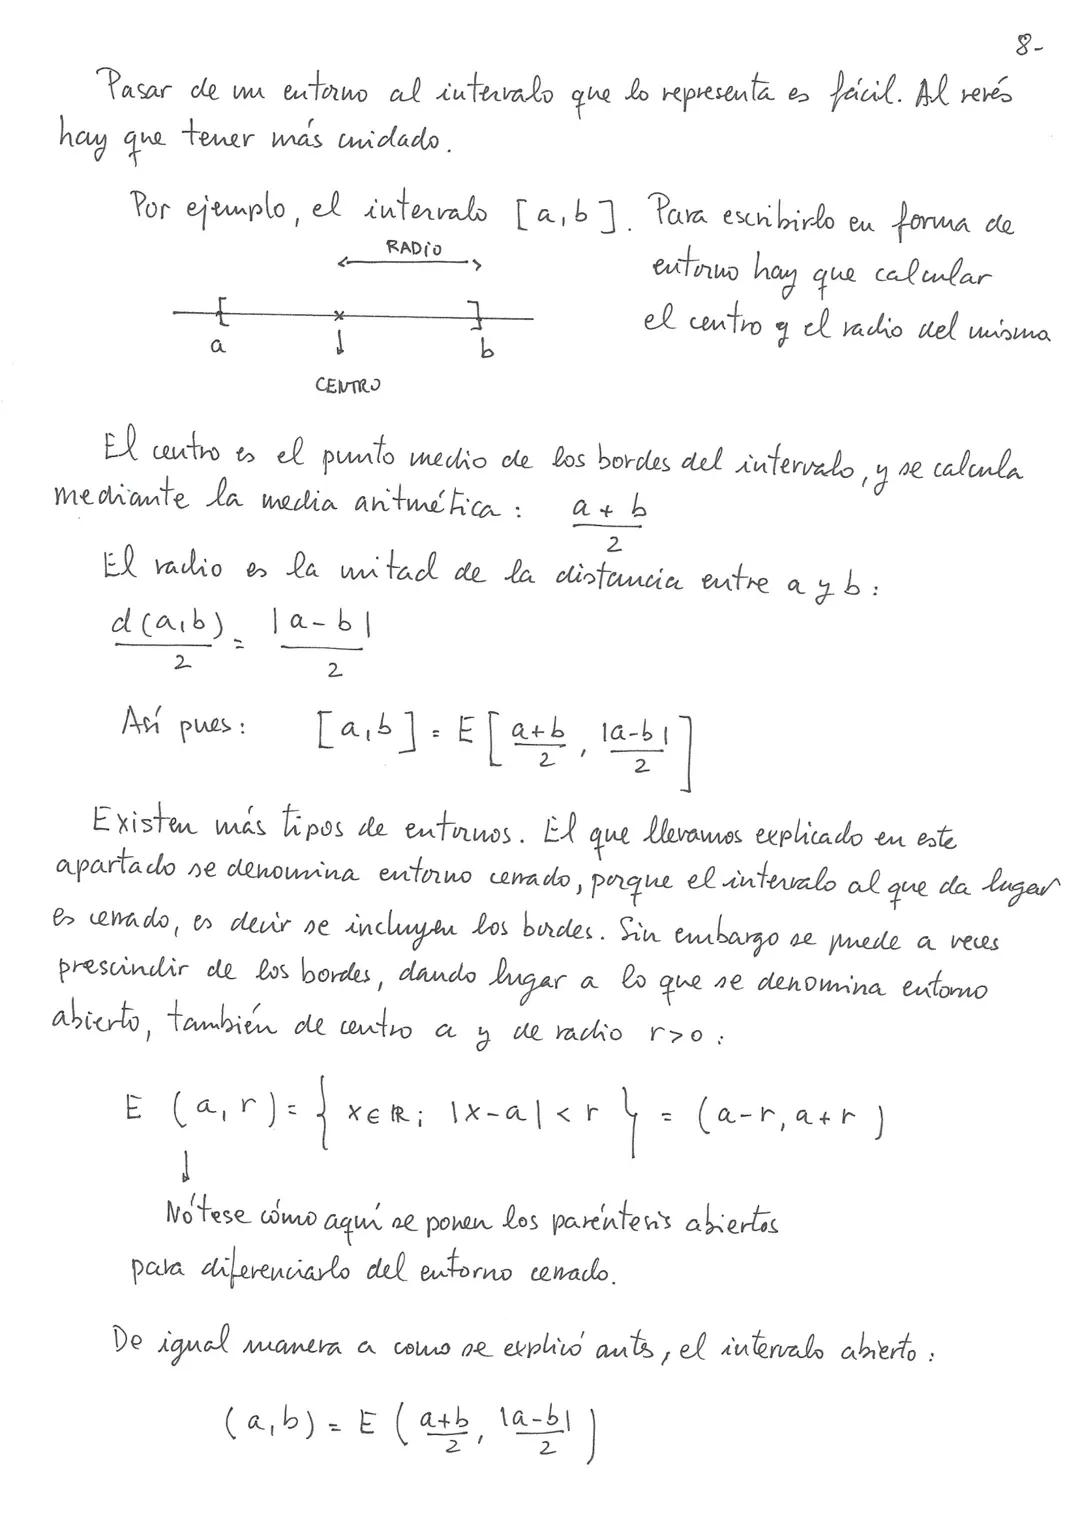 8-
Pasar de un entorno al intervalo que lo representa es fácil. Al revés
hay que tener más cuidado.
Por ejemplo, el intervalo [a,b]. Para escribirlo en forma de
entorno hay que calcular
el centro y el radio del mismo
RADIO
a
b
CENTRO
El centro es el punto medio de los bordes del intervalo, y se calcula
mediante la media aritmética: a + b / 2
El radio es la mitad de la distancia entre a y b:
d(a,b) / 2 = |a-b| / 2
Así pues: [a,b] = E [ a+b / 2 , |a-b| / 2 ]
Existen más tipos de entornos. El que llevamos explicado en este
apartado se denomina entorno cerrado, porque el intervalo al que da lugar
es cerrado, es decir se incluyen los bordes. Sin embargo se puede a veces
prescindir de los bordes, dando lugar a lo que se denomina entorno
abierto, también de centro a y de radio r>0:
E (a,r) = { x∈ℝ; |x-a| < r } = (a-r, a+r)
↓
Nótese cómo aquí se ponen los paréntesis abiertos
para diferenciarlo del entorno cerrado.
De igual manera a como se explicó antes, el intervalo abierto:
(a,b) = E ( a+b / 2 , |a-b| / 2 )